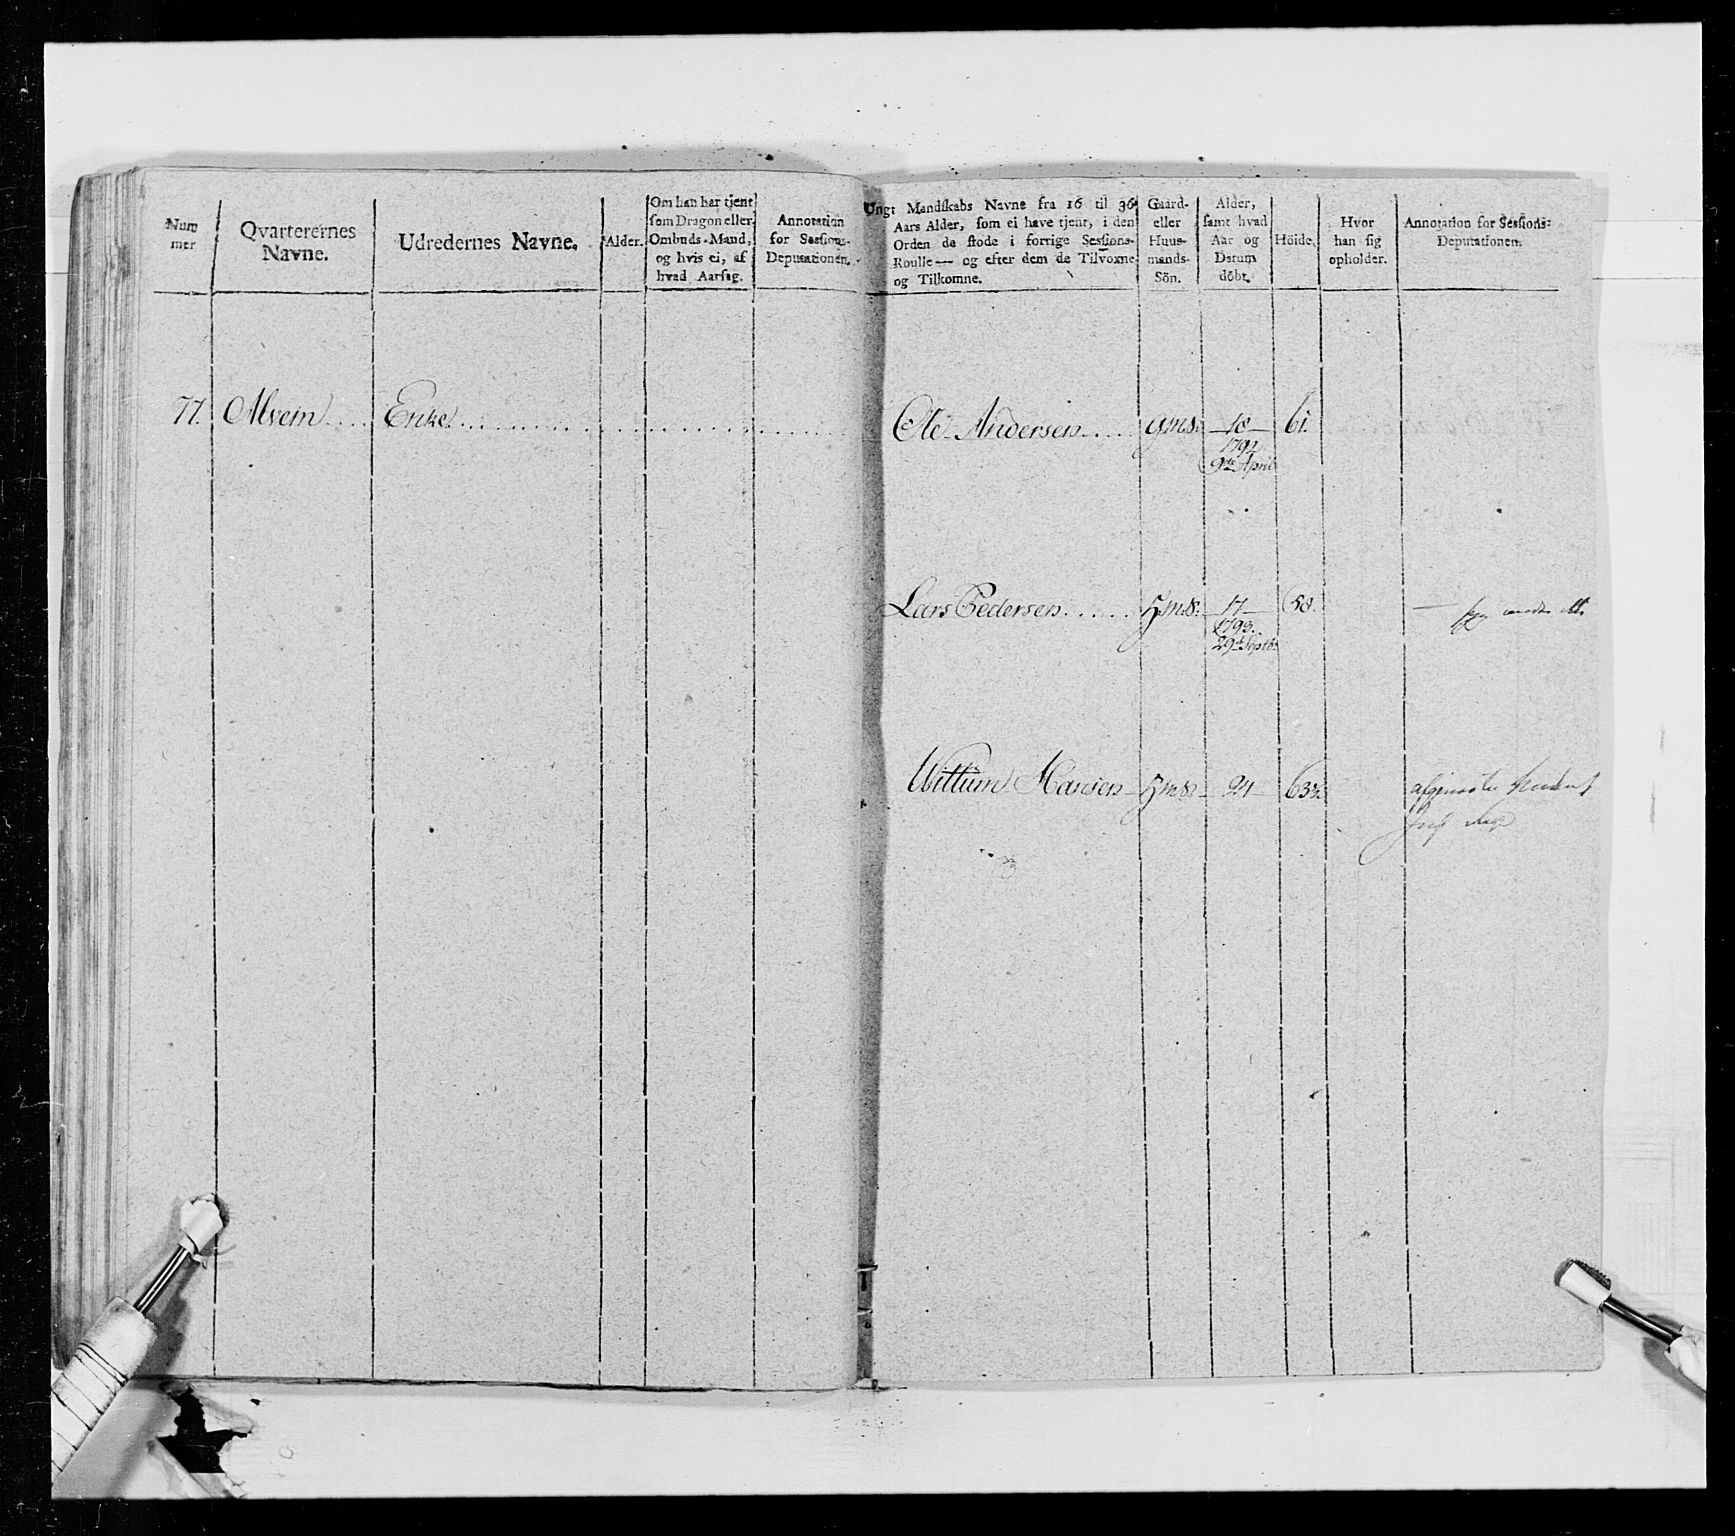 Num
mer
Qvarterernes
Navne.
Udredernes Navne.
Alder.
Om han har tjent
som Dragon eller
Ombuds-Mand,
og hvis ei, af
hvad Aarsag.
Annotation
for Sessions-
Deputationen.
Ungt Mandskabs Navne fra 16 til 36
Aars Alder, som ei have tjent, i den
Orden de stode i forrige Sessions-
Roulle— og efter dem de Tilvoxne
og Tilkomne.
Gaard-
eller
Huus-
mands-
Sön.
Alder,
samt hvad
Aar og
Datum
döbt.
Höide.
Hvor
han sig
opholder.
Annotation for Sessions-
Deputationen.
77. Alveim.... Enke.
Ole Andersen..... gms. 18 61.
1792
9de April
Lars Pedersen...... Hms. 17 58.
1793.
29de Septb
Willum Hansen Hms. 21 63½